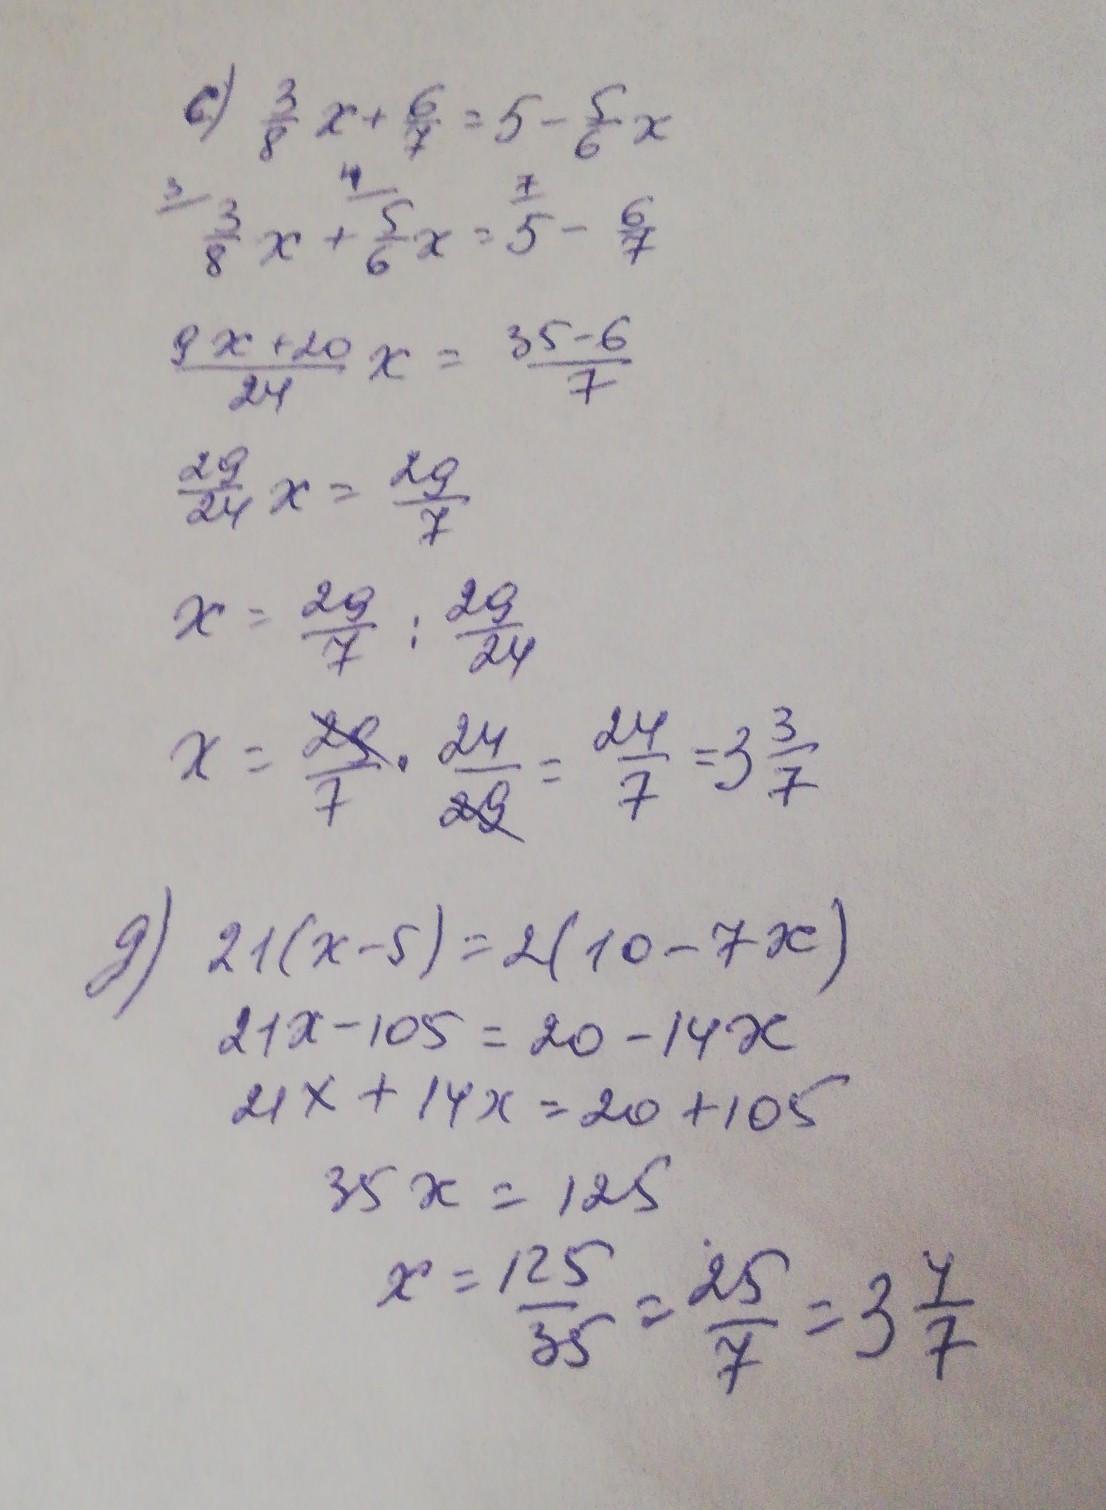 c) 3/8 x + 6/7 = 5 - 5/6 x
3/ 3/8 x + 4/ 5/6 x = 7/ 5 - 6/7
(9x+20)/24 x = (35-6)/7
29/24 x = 29/7
x = 29/7 : 29/24
x = 29/7 · 24/29 = 24/7 = 3 3/7
g) 21(x-5) = 2(10-7x)
21x-105 = 20-14x
21x + 14x = 20 + 105
35x = 125
x = 125/35 = 25/7 = 3 4/7